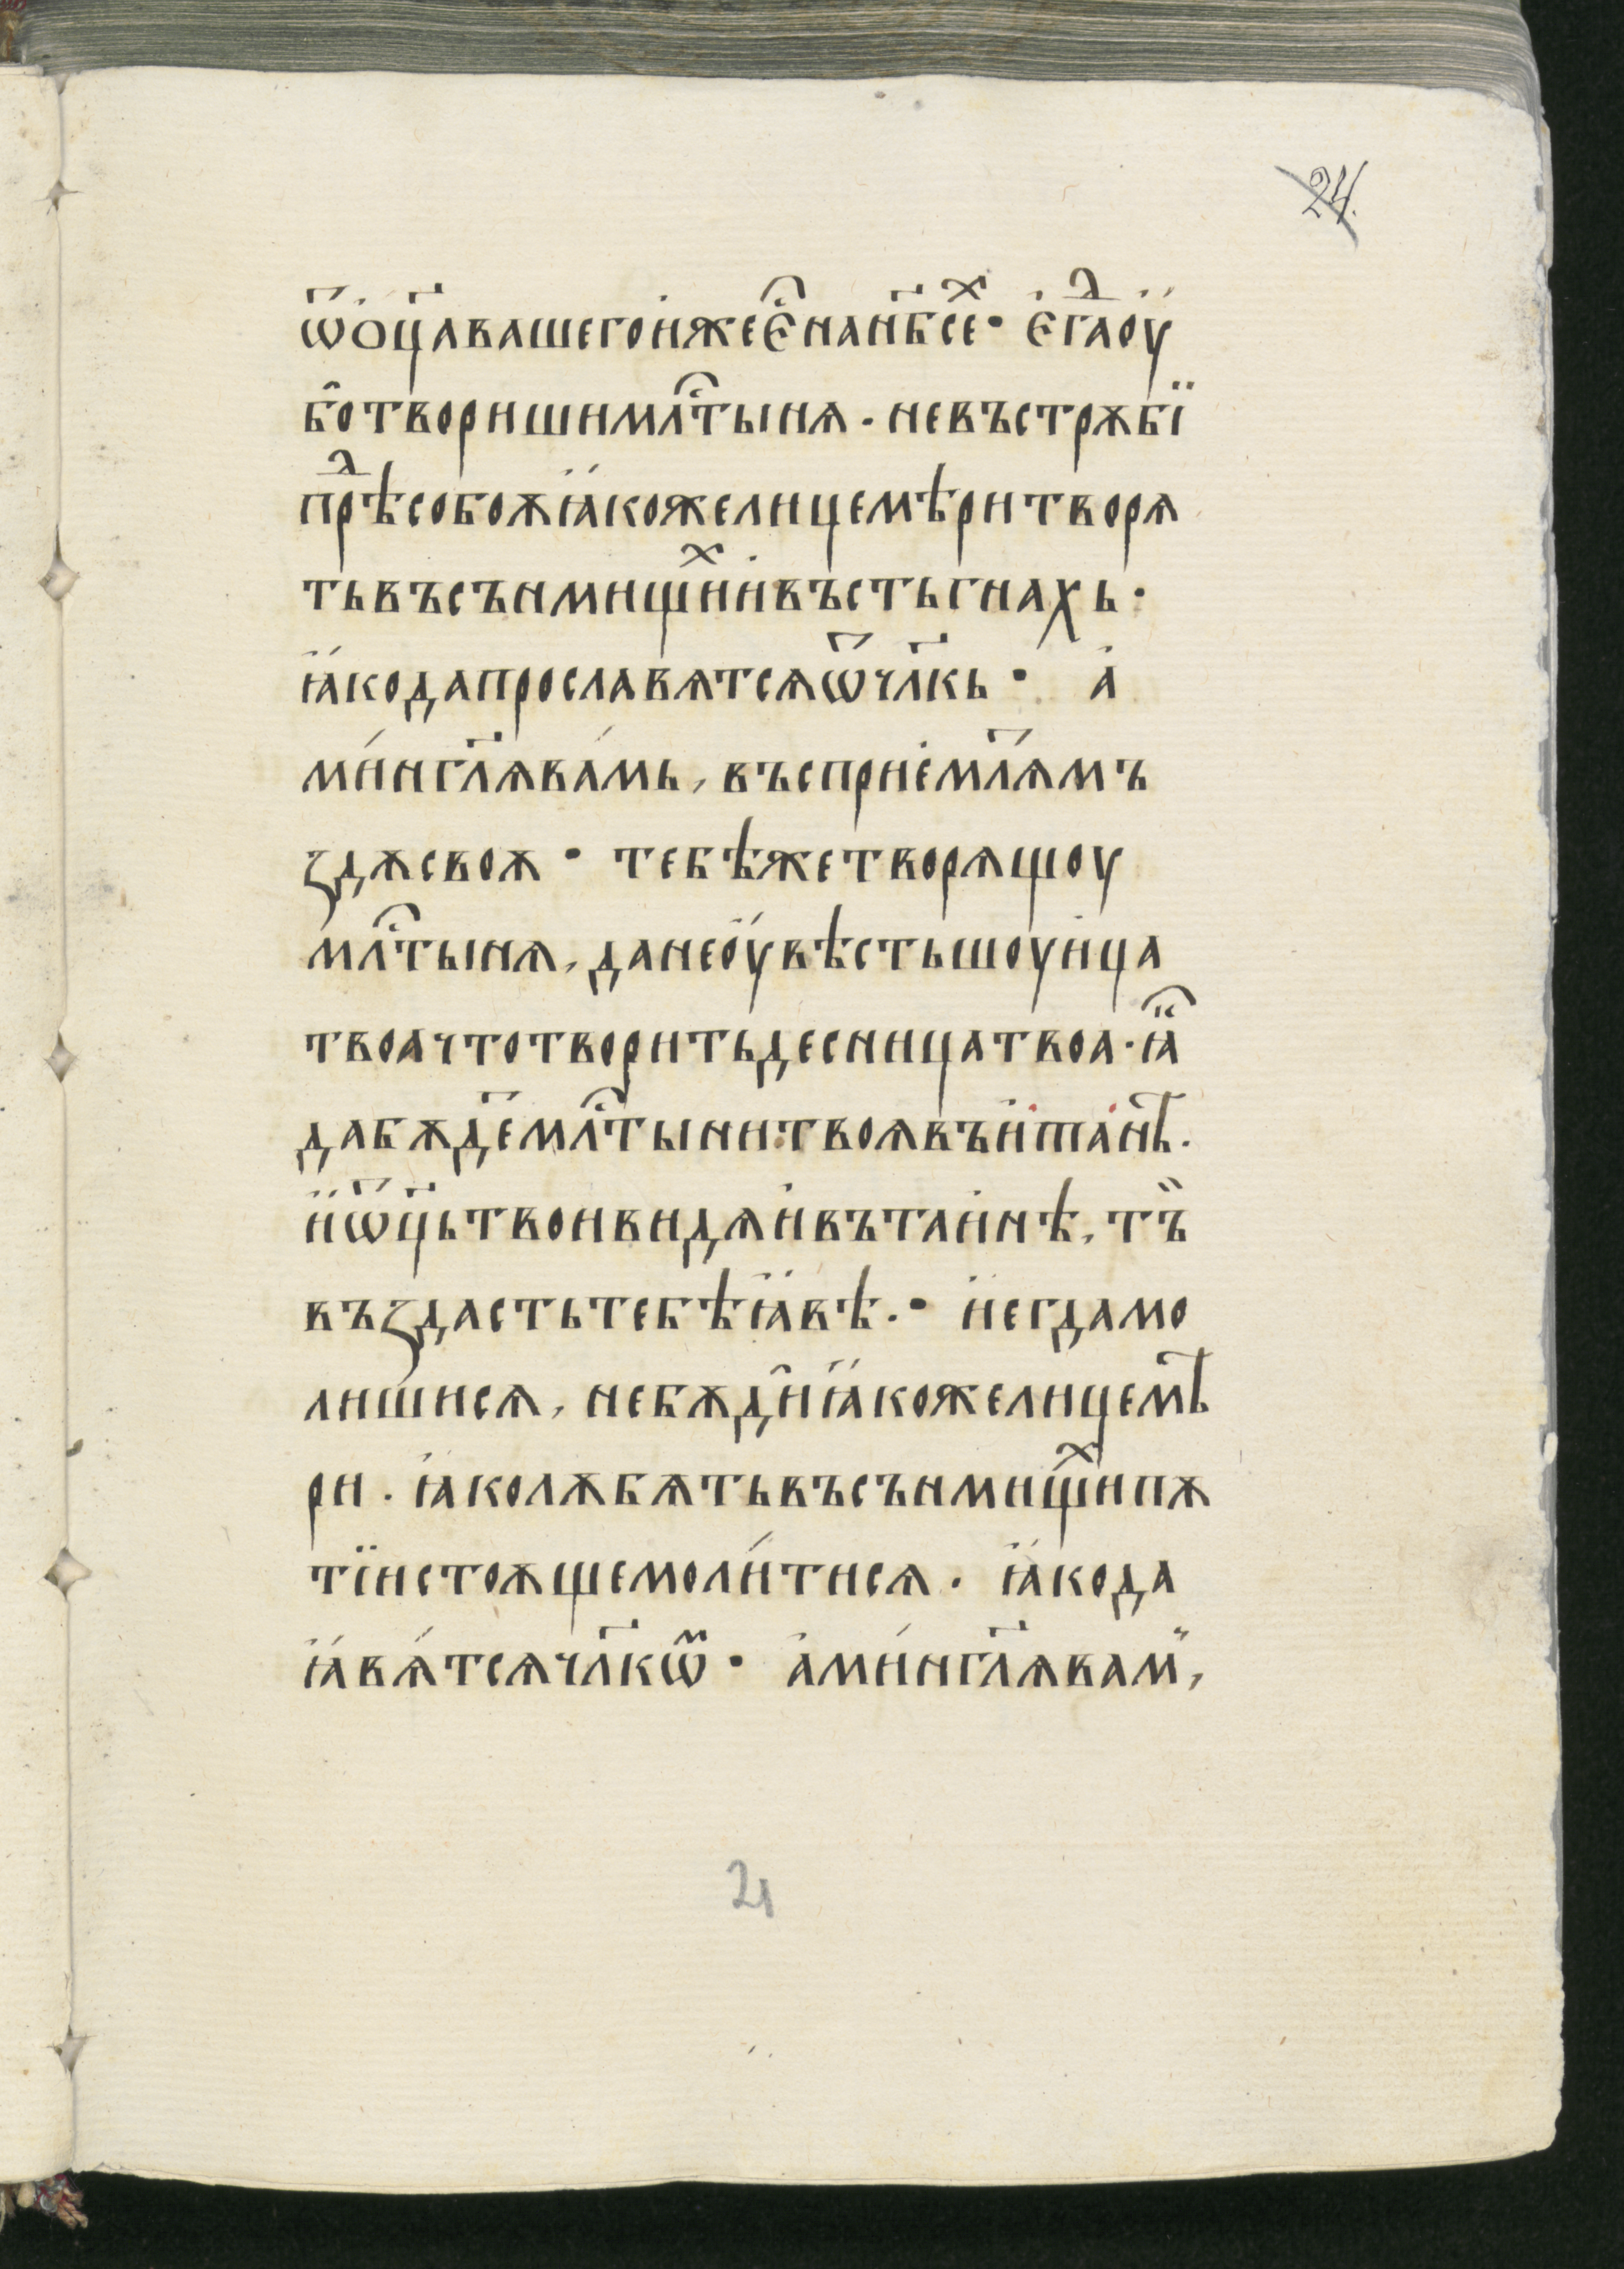 24.
ѿо҆ц҃а вашего и҆же е҆с҇ на нб҃се҆х. е҆гда ᲂу҆
бо̑ твориши мл҇тынѧ. не въстрѫбі
прѣд собоѫ ꙗ҆коже лицемѣри творѧ
ть въ сънмищих и҆ въ стьгнахь.
ꙗ҆ко да прославѧтсѧ ѿ чл҃кь. а҆
ми́н гл҃ѧ ва́мь, въсприе҆млѧ҃ мъ
ꙁдѫ своѫ. тебѣ же творѧщоу
мл҇тынѧ, да не ᲂу҆вѣсть шоуи҆ца
твоа что творить десница твоа. ꙗ҆
да бѫде҃ мл҇тыни твоѧ въ и҆таи҆нѣ.
и҆ ѿ҃ц҃ь твои видѧи҆ въ таи҆нѣ, тъ̏
въꙁдасть тебѣ ꙗ҆вѣ. и҆ егда мо
лишисѧ, не бѫди̑ ꙗ҆коже лицемѣ
ри. ꙗ҆ко лѫбѧть въ сънмищих и пѫ
тїи стоѫще моли́тисѧ. ꙗ҆ко да
ꙗ҆вѧ́тсѧ чл҃кѡм. а҆ми́н гл҃ѧ вам̏,
21